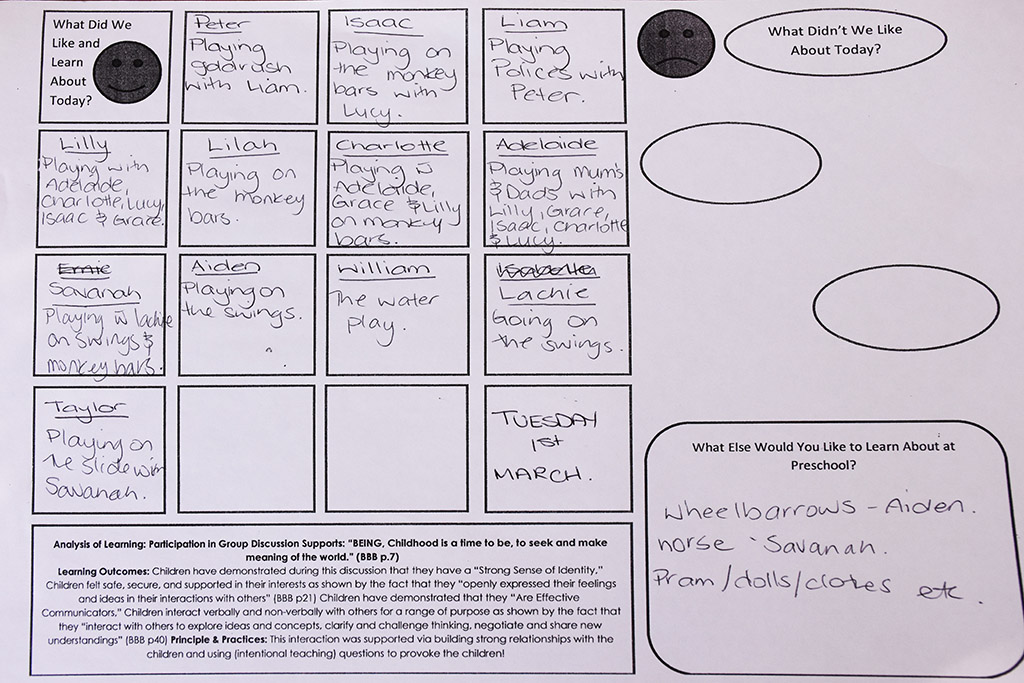 What Did We
Like and
Learn
About
Today?
Peter
Playing
goldrush
with Liam.
Isaac
Playing on
the monkey
bars with
Lucy.
Liam
Playing
Polices with
Peter.
What Didn't We Like
About Today?
Lilly
Playing with
Adelaide,
Charlotte, Lucy,
Isaac & Grace.
Lilah
Playing on
the monkey
bars.
Charlotte
Playing w
Adelaide,
Grace & Lilly
on monkey
bars.
Adelaide
Playing Mum's
& Dads with
Lilly, Grace,
Isaac, Charlotte
& Lucy.
Ernie
Savanah
Playing w lachie
on swings &
monkey bars.
Aiden
Playing on
the swings.
William
The water
play.
Isabella
Lachie
Going on
the swings.
Taylor
Playing on
the slide with
Savanah.
TUESDAY
1st
MARCH.
What Else Would You Like to Learn About at
Preschool?
wheelbarrows - Aiden.
horse - Savanah.
Pram/dolls/clothes etc.
Analysis of Learning: Participation in Group Discussion Supports: "BEING, Childhood is a time to be, to seek and make
meaning of the world." (BBB p.7)
Learning Outcomes: Children have demonstrated during this discussion that they have a "Strong Sense of Identity."
Children felt safe, secure, and supported in their interests as shown by the fact that they "openly expressed their feelings
and ideas in their interactions with others" (BBB p21) Children have demonstrated that they "Are Effective
Communicators." Children interact verbally and non-verbally with others for a range of purpose as shown by the fact that
they "interact with others to explore ideas and concepts, clarify and challenge thinking, negotiate and share new
understandings" (BBB p40) Principle & Practices: This interaction was supported via building strong relationships with the
children and using (intentional teaching) questions to provoke the children!